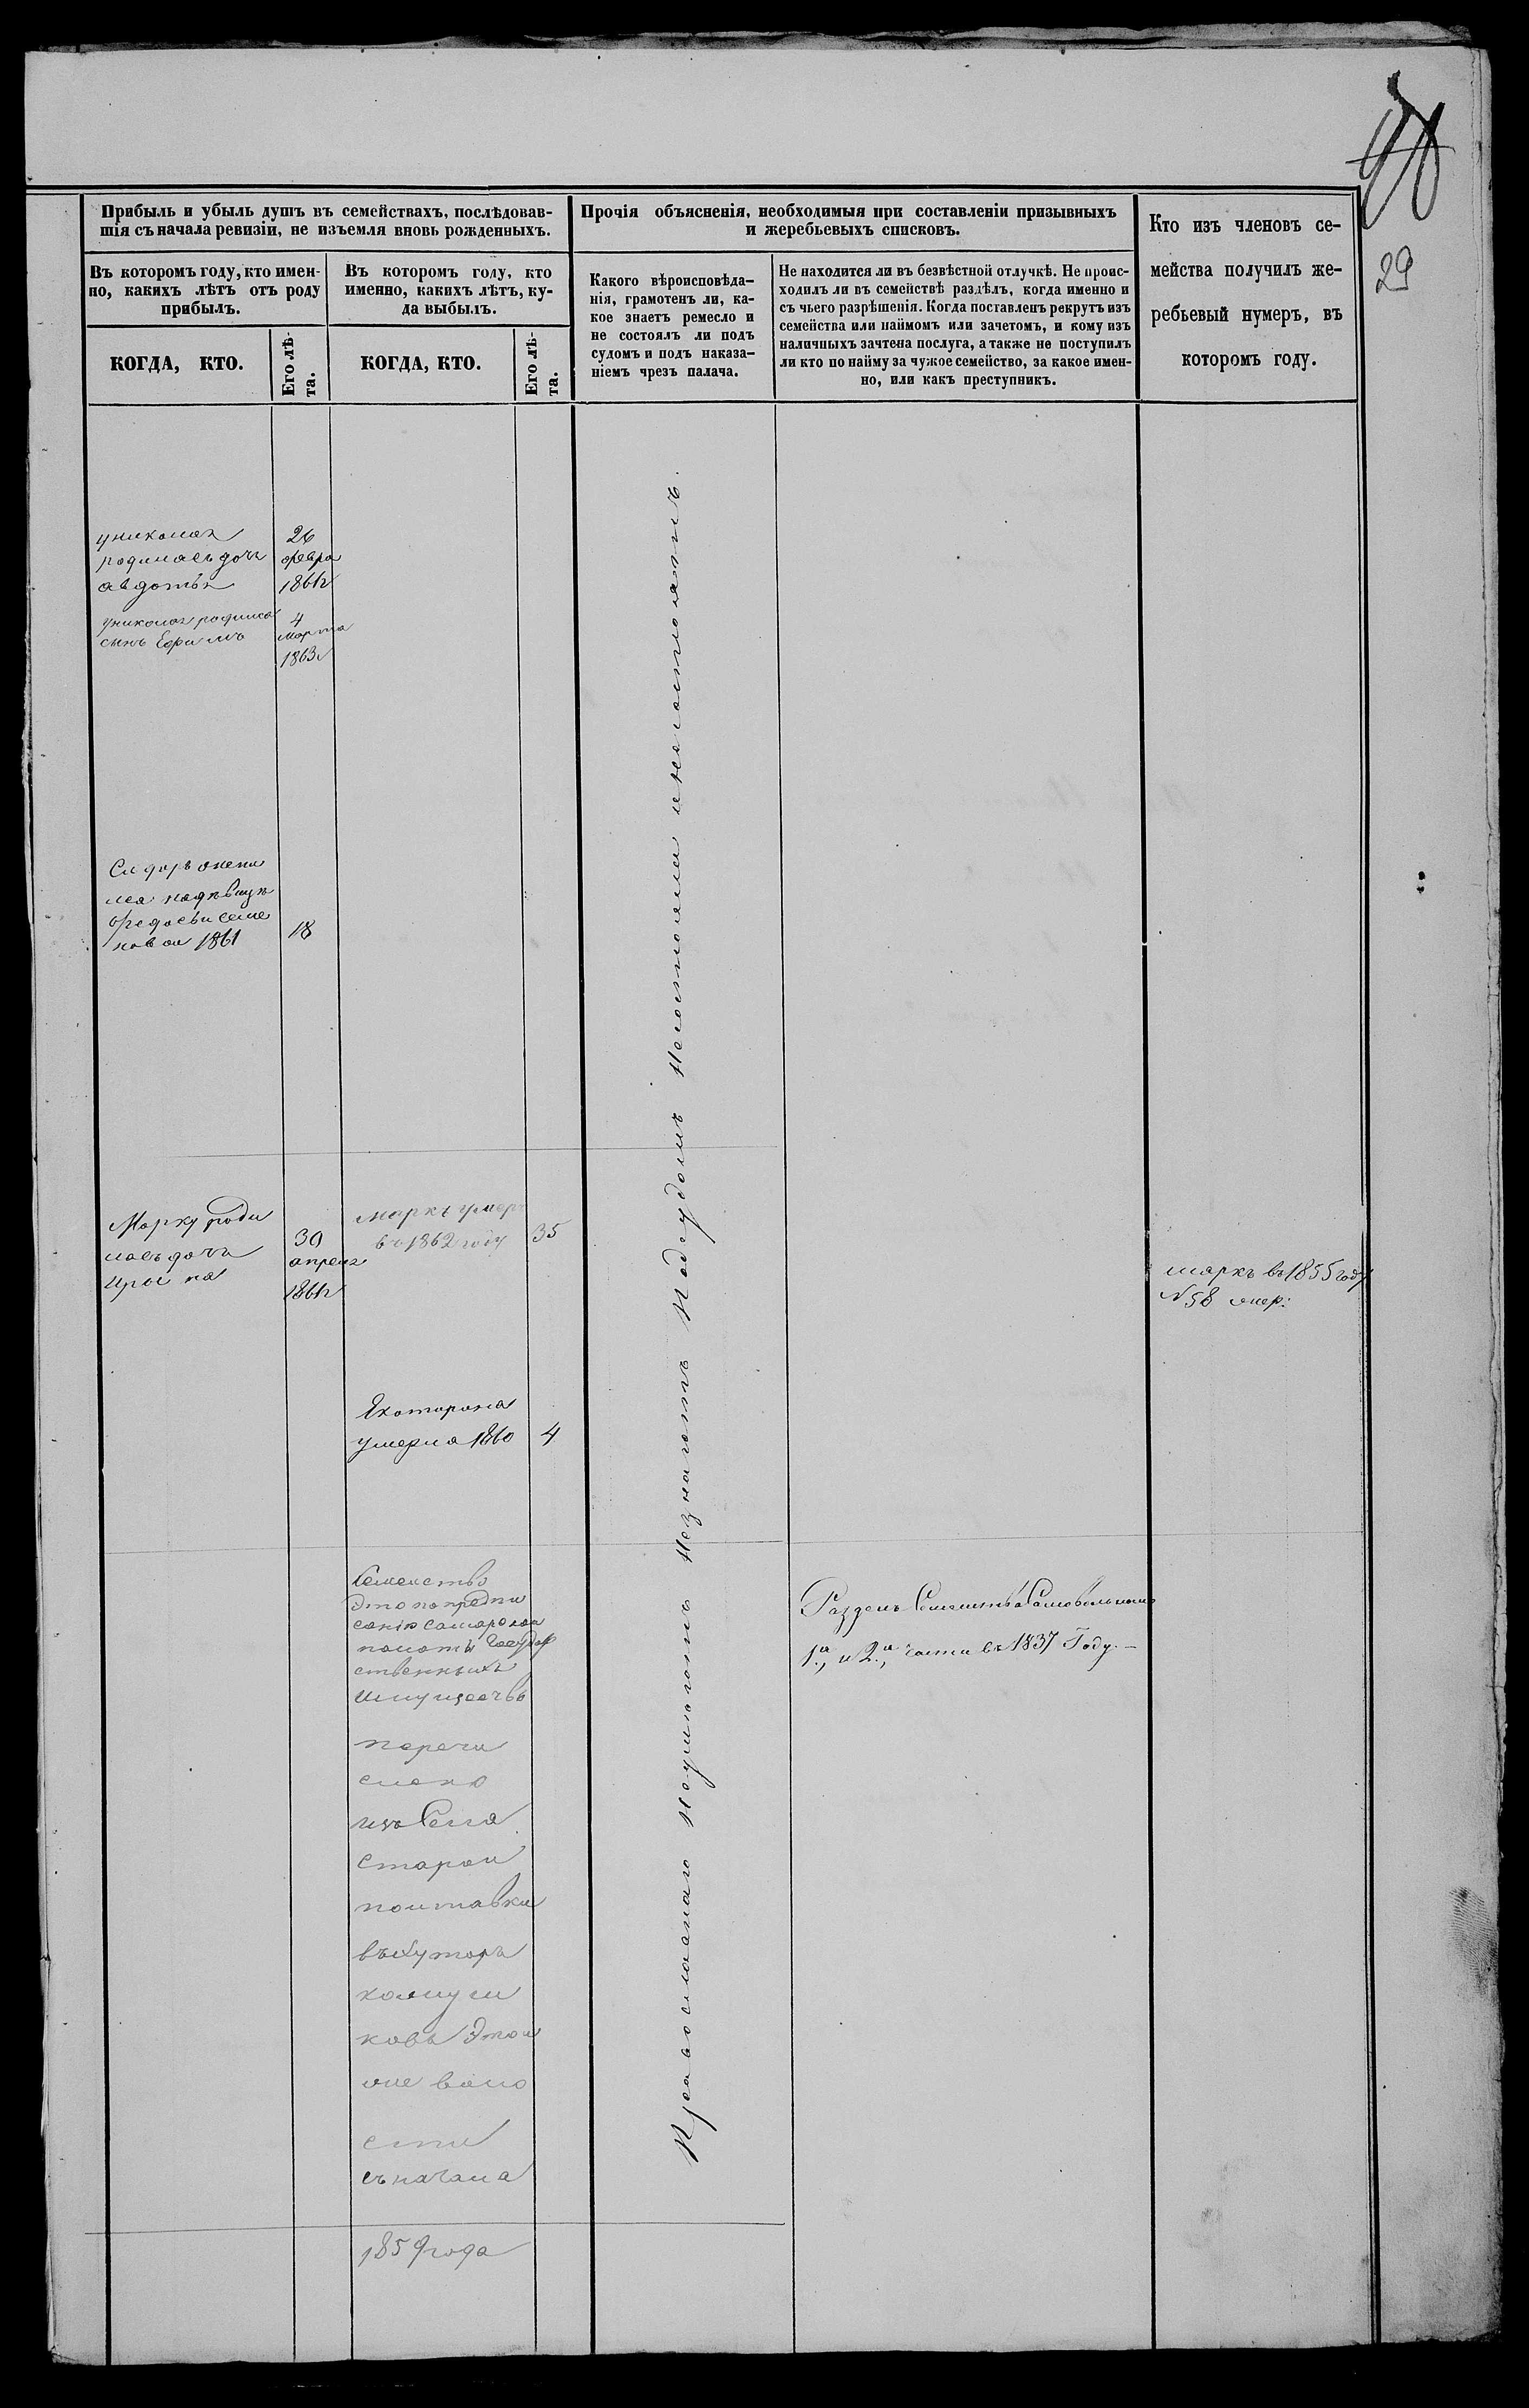 29
Прибыль и убыль душъ въ семействахъ, послѣдовав-
шія съ начала ревизіи, не изъемля вновь рожденныхъ.
Прочія объясненія, необходимыя при составленіи призывныхъ
и жеребьевыхъ списковъ.
Кто изъ членовъ се-
мейства получилъ же-
ребьевый нумеръ, въ
которомъ году.
Въ которомъ году, кто имен-
но, какихъ лѣтъ отъ роду
прибылъ.
Въ которомъ году, кто
именно, какихъ лѣтъ, ку-
да выбылъ.
Какого вѣроисповѣда-
нія, грамотенъ ли, ка-
кое знаетъ ремесло и
не состоялъ ли подъ
судомъ и подъ наказа-
ніемъ чрезъ палача.
Не находится ли въ безвѣстной отлучкѣ. Не проис-
ходилъ ли въ семействѣ раздѣлъ, когда именно и
съ чьего разрѣшенія. Когда поставленъ рекрутъ изъ
семейства или наймомъ или зачетомъ, и кому изъ
наличныхъ зачтена послуга, а также не поступилъ
ли кто по найму за чужое семейство, за какое имен-
но, или какъ преступникъ.
КОГДА, КТО.
Его лѣ-
та.
КОГДА, КТО.
Его лѣ-
та.
униколая
родилась дочь
авдотья
26
февра
1861г
униколая родился
сынъ Ефимъ
4
марта
1863г
Сидоръ жени
лся надѣвицѣ
федосьи семе
новой 1861
18
Марку роди
лась дочь
ирина
30
апреля
1861г
маркъ умеръ
въ 1862 году
35
маркъ въ 1855 году
N 58 жер:
Екатерина
умерла 1860
4
Семейство
Это по предпи
санію самарской
палаты Государ
ственныхъ
Имуществъ
перечи
слено
изъ Села
Старой
полтавки
въ Хуторъ
Этой
же воло
сти
съ начала
1859 года
Православнаго Неучился Незнаютъ Подсудомъ Несостояли инесостоятъ.
Разделъ Семейства Самовольный
1.й и 2.й части въ 1837 Году.—